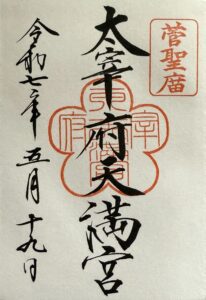 菅聖庿
太宰府天満宮
令和七年 五月 十九日